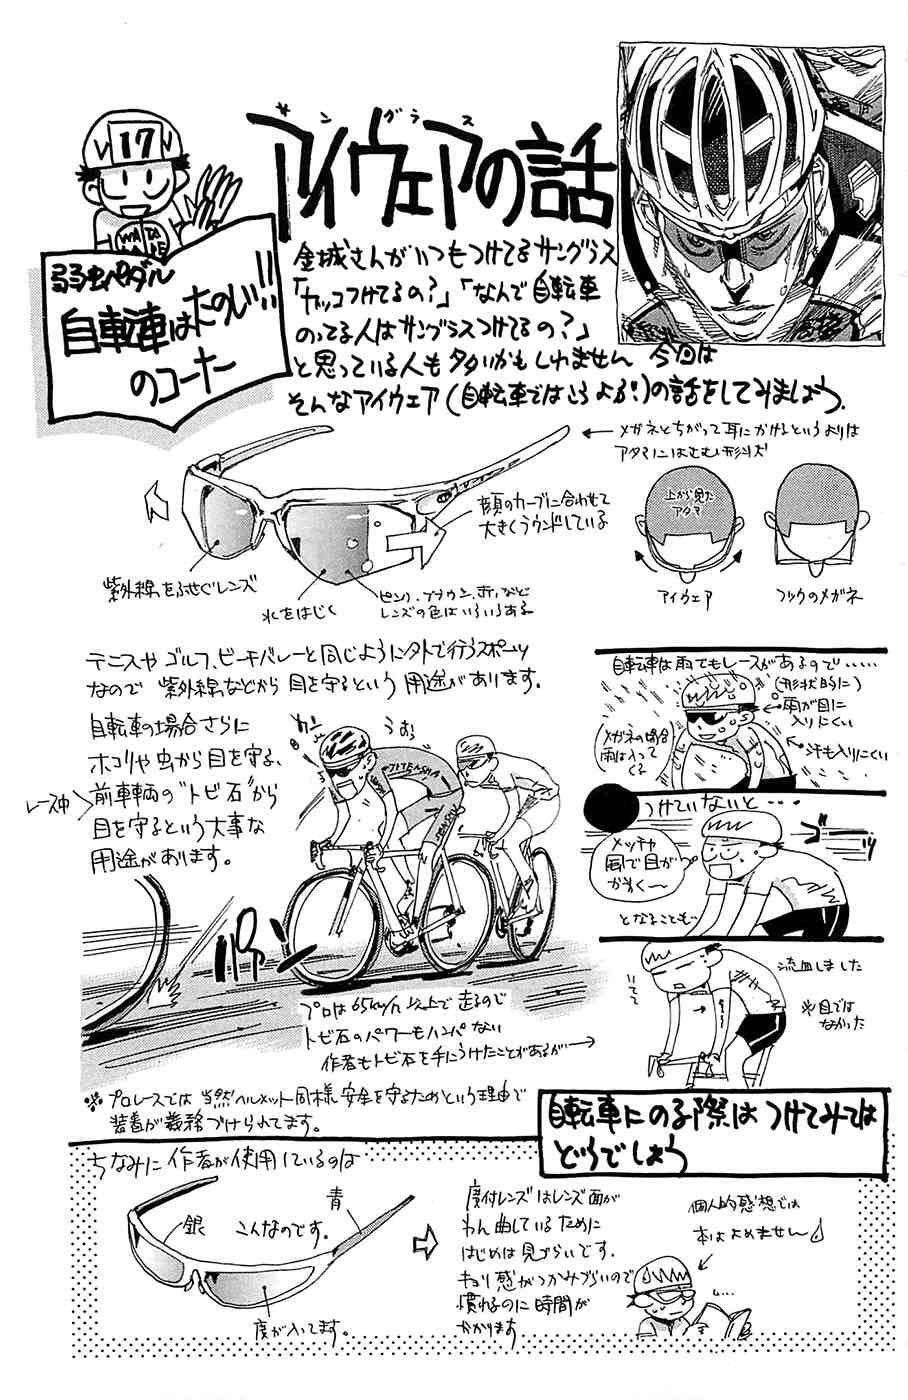 サングラス
アイウェアの話
17
WATA
NABE
弱虫ペダル
自転車はたのしい!!
のコーナー
金城さんがいつもつけてるサングラス
「カッコつけてるの?」「なんで自転車
のってる人はサングラスつけてるの?」
と思っている人も多いかもしれません 今回は
そんなアイウェア(自転車ではこうよぶ!)の話をしてみましょう.
← メガネとちがって耳にかけるというよりは
アタマにはさむ形状だ
顔のカーブに合わせて
大きくラウンドしている
紫外線をふせぐレンズ
水をはじく
ピンク、ブラウン、赤、など
レンズの色はいろいろある
上から見た
アタマ
アイウェア
フツウのメガネ
テニスや ゴルフ、ビーチバレーと同じように外で行うスポーツ
なので 紫外線などから 目を守るという 用途があります.
自転車の場合さらに
ホコリや虫から目を守る、
レース中
前車輌の"トビ石"から
目を守るという大事な
用途があります。
うおお
SENSHU
パァン
プロは65km/h 以上で 走るので
トビ石のパワーもハンパない
作者もトビ石を手にうけたことがあるが→
自転車は雨でもレースがあるので・・・・・
(形状的に)
←雨が目に
入りにくい
(メガネの場合
雨は入って
くる
汗も入りにくい
つけていないと・・・
メッチャ
風で目が
かわく〜
ゴーッ
となることも…
いてて
流血しました
※目では
なかった
※プロレースでは 当然ヘルメット同様 安全を守るためという理由で
装着が義務づけられてます。
自転車にのる際は つけてみては
どうでしょう
ちなみに 作者が使用しているのは
銀
こんなのです。
青
度が入ってます。
度付レンズはレンズ面が
わん曲しているために
はじめは見づらいです.
キョリ感がつかみづらいので
慣れるのに 時間が
かかります
個人的感想では
本はよめません